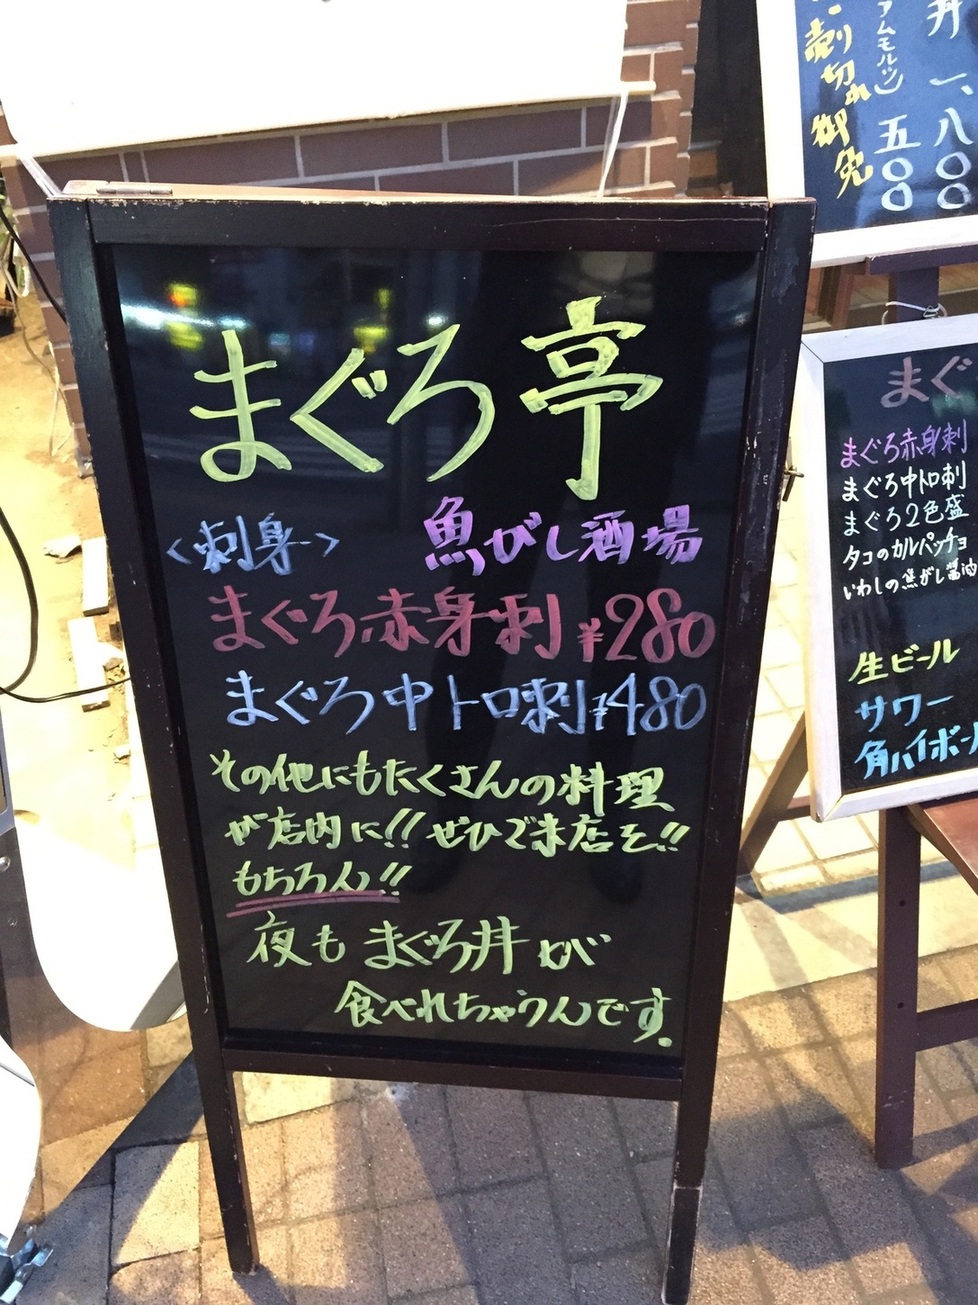 まぐろ亭
<刺身> 魚がし酒場
まぐろ赤身刺 ¥280
まぐろ中トロ刺 ¥480
その他にもたくさんの料理
が店内に!! ぜひご来店を!!
もちろん!!
夜もまぐろ丼が
食べれちゃうんです。
丼 一、八〇〇
アムモルツ) 五〇〇
売り切れ御免
まぐ
まぐろ赤身刺
まぐろ中トロ刺
まぐろ2色盛
タコのカルパッチョ
いわしの焦がし醤油
生ビール
サワー
角ハイボール